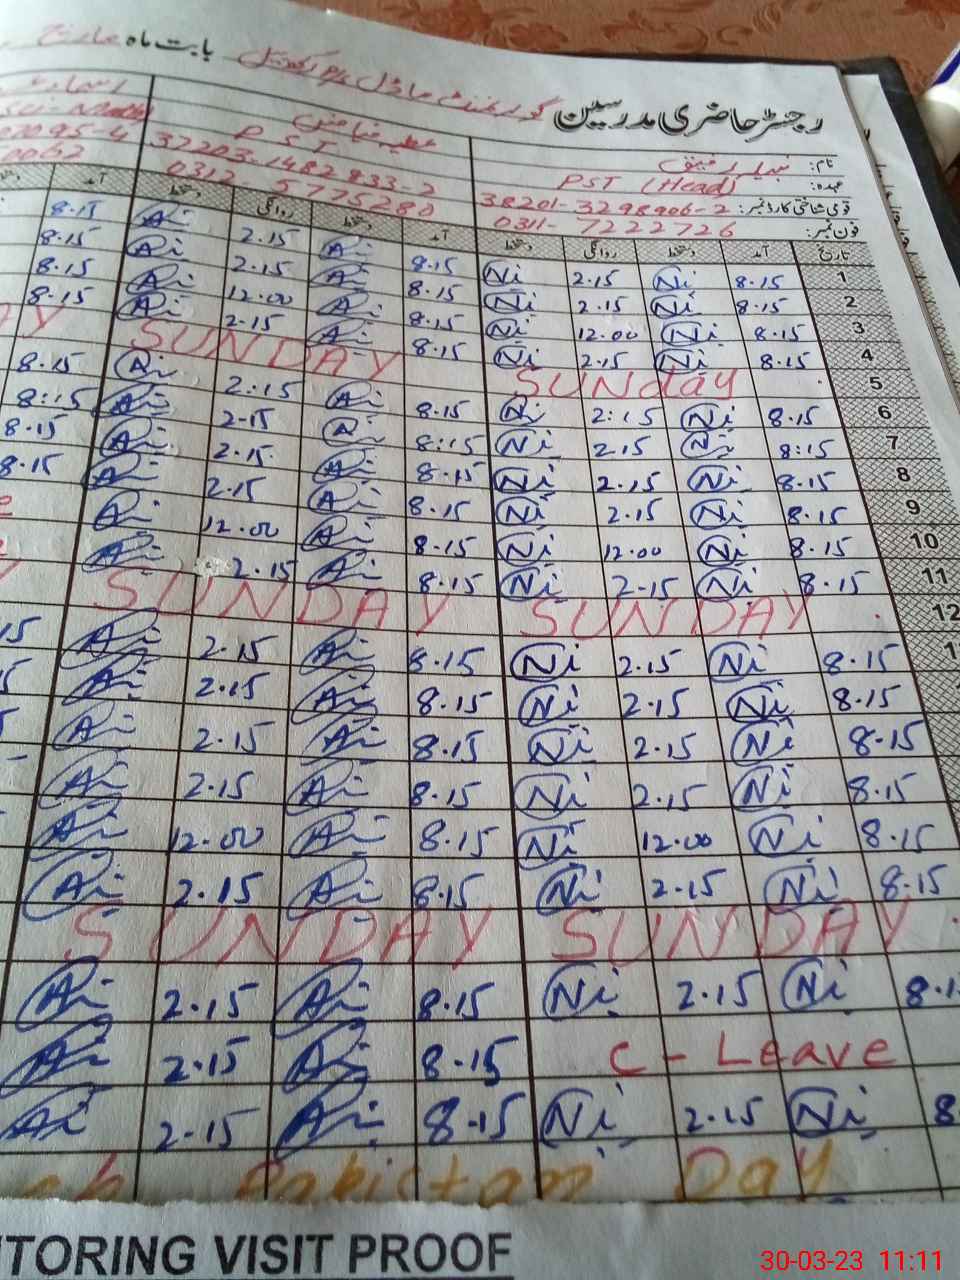 رجسٹر حاضری مدرسین گورنمنٹ ماڈل بابت ماہ مارچ
نام: نبیلہ رفیق
عہدہ: PST (Head) PST
قومی شناختی کارڈ نمبر: 38201-3298906-2 37203-1482833-2
فون نمبر: 0311-7222726 0312 5775280
تاریخ آمد دستخط روانگی دستخط آمد دستخط روانگی دستخط آمد
1 8.15 Ni 2.15 Ni 8.15 Ai 2.15 Ai 8.15
2 8.15 Ni 2.15 Ni 8.15 Ai 2.15 Ai 8.15
3 8.15 Ni 12.00 Ni 8.15 Ai 12.00 Ai 8.15
4 8.15 Ni 2.15 Ni 8.15 Ai 2.15 Ai 8.15
5 SUNday SUNDAY
6 8.15 Ni 2:15 Ni 8.15 Ai 2:15 Ai 8.15
7 8:15 Ni 2.15 Ni 8:15 Ai 2.15 Ai 8:15
8 8.15 Ni 2.15 Ni 8.15 Ai 2.15 Ai 8.15
9 8.15 Ni 2.15 Ni 8.15 Ai 2.15 Ai 8.15
10 8.15 Ni 12.00 Ni 8.15 Ai 12.00 Ai
11 8.15 Ni 2.15 Ni 8.15 Ai 2.15 Ai
12 SUNDAY SUNDAY
8.15 Ni 2.15 Ni 8.15 Ai 2.15 Ai 15
8.15 Ni 2.15 Ni 8.15 Ai 2.15 Ai
8.15 Ni 2.15 Ni 8.15 Ai 2.15 Ai
8.15 Ni 2.15 Ni 8.15 Ai 2.15 Ai
8.15 Ni 12.00 Ni 8.15 Ai 12.00 Ai
8.15 Ni 2.15 Ni 8.15 Ai 2.15 Ai
SUNDAY SUNDAY
8.1 Ni 2.15 Ni 8.15 Ai 2.15 Ai
C - Leave 8.15 Ai 2.15 Ai
8 Ni 2.15 Ni 8.15 Ai 2.15 Ai
Pakistan Day
ITORING VISIT PROOF
30-03-23 11:11